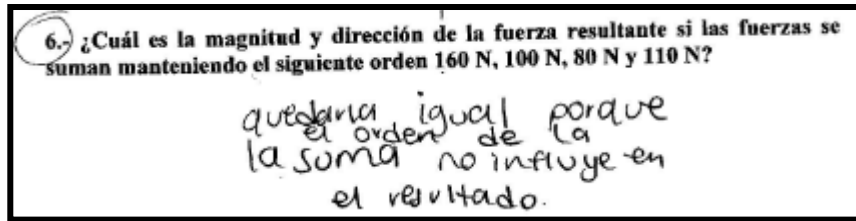 6.- ¿Cuál es la magnitud y dirección de la fuerza resultante si las fuerzas se
suman manteniendo el siguiente orden 160 N, 100 N, 80 N y 110 N?
quedaria igual porque
el orden de la
la suma no influye en
el resultado.